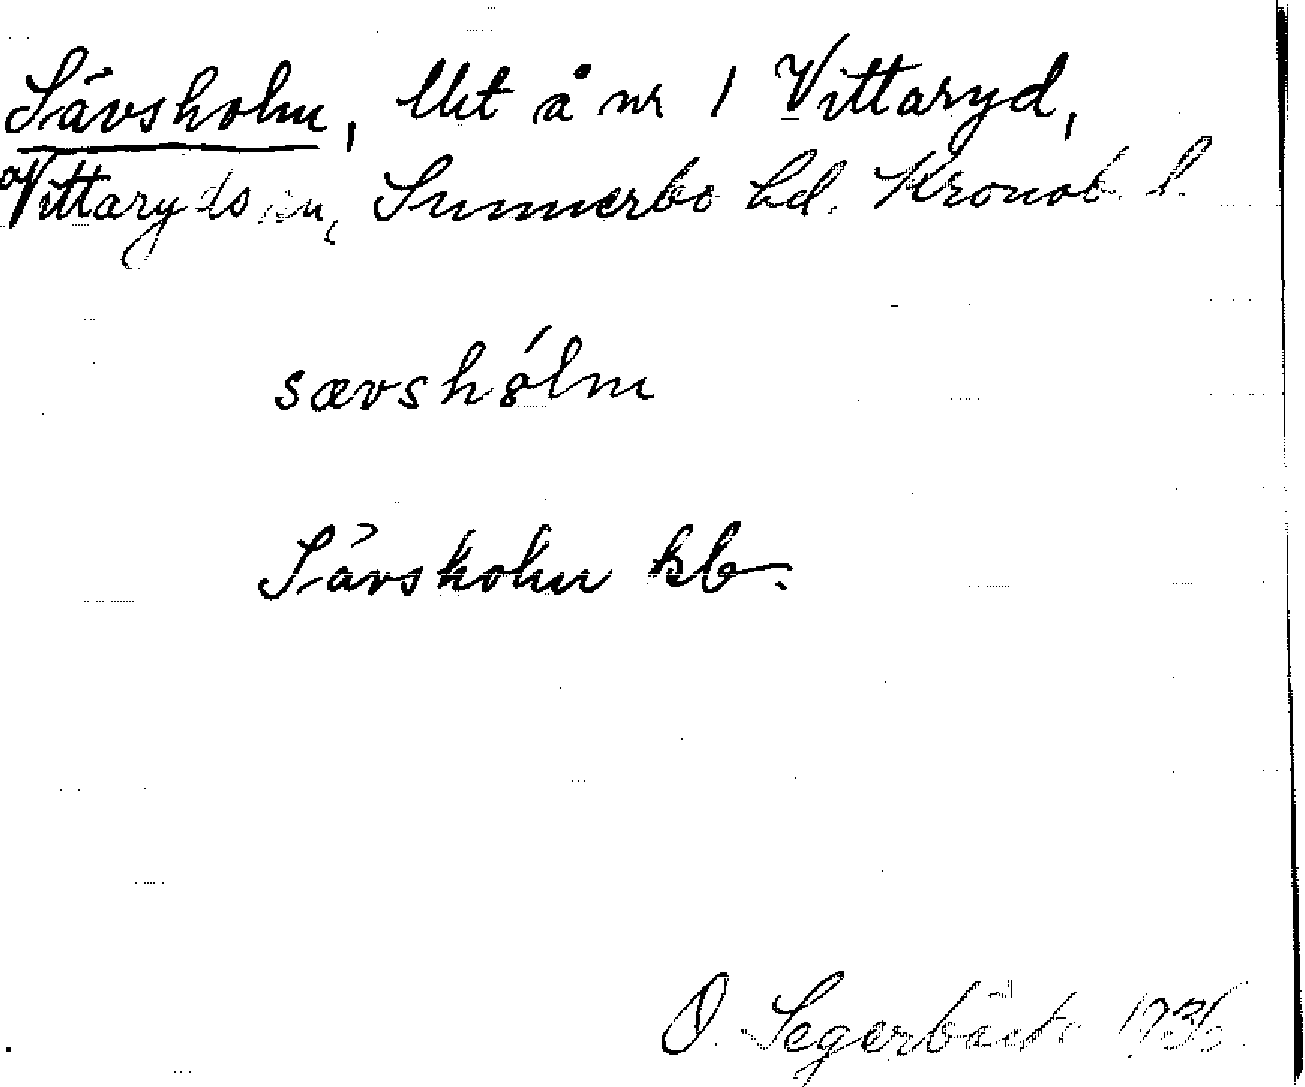 Sävsholm, lht å nr 1 Vittaryd,
Vittaryds sn, Sunnerbo hd. Kronob. l.
sævshólm
Sävsholm kb.
O. Segerbäck 1936.